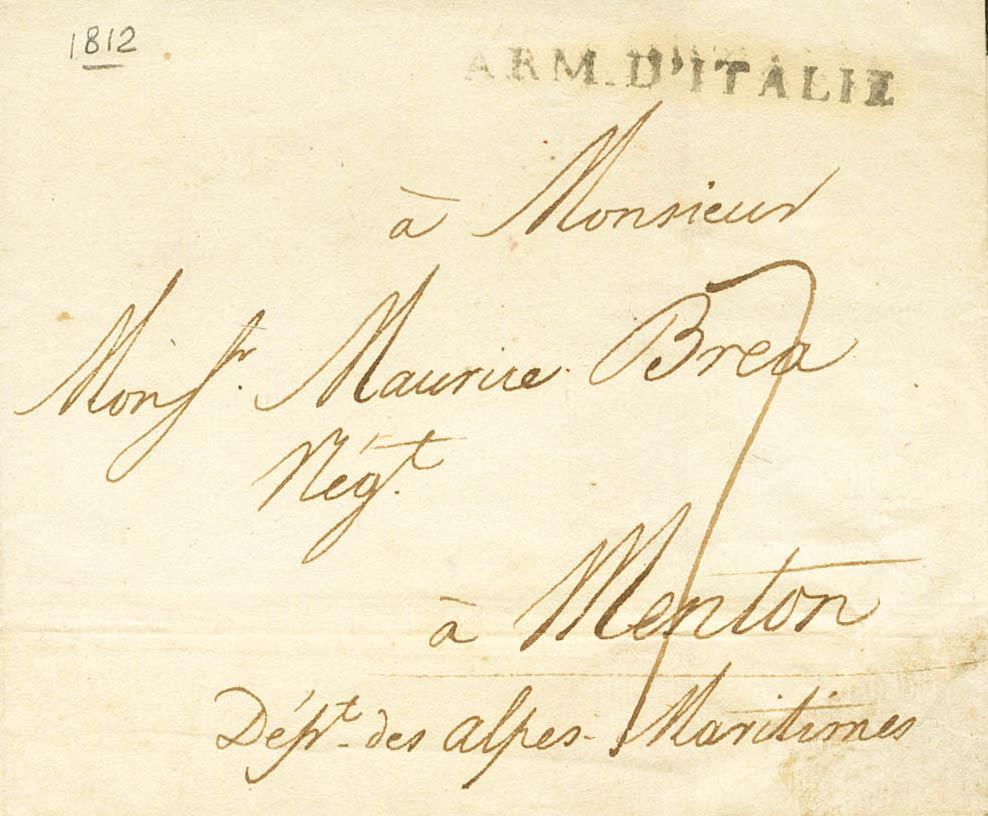 1812
ARM. D'ITALIE
à Monsieur
Monsr. Maurice Brea
Négt.
à Menton
Dépt. des alpes-Maritimes
7